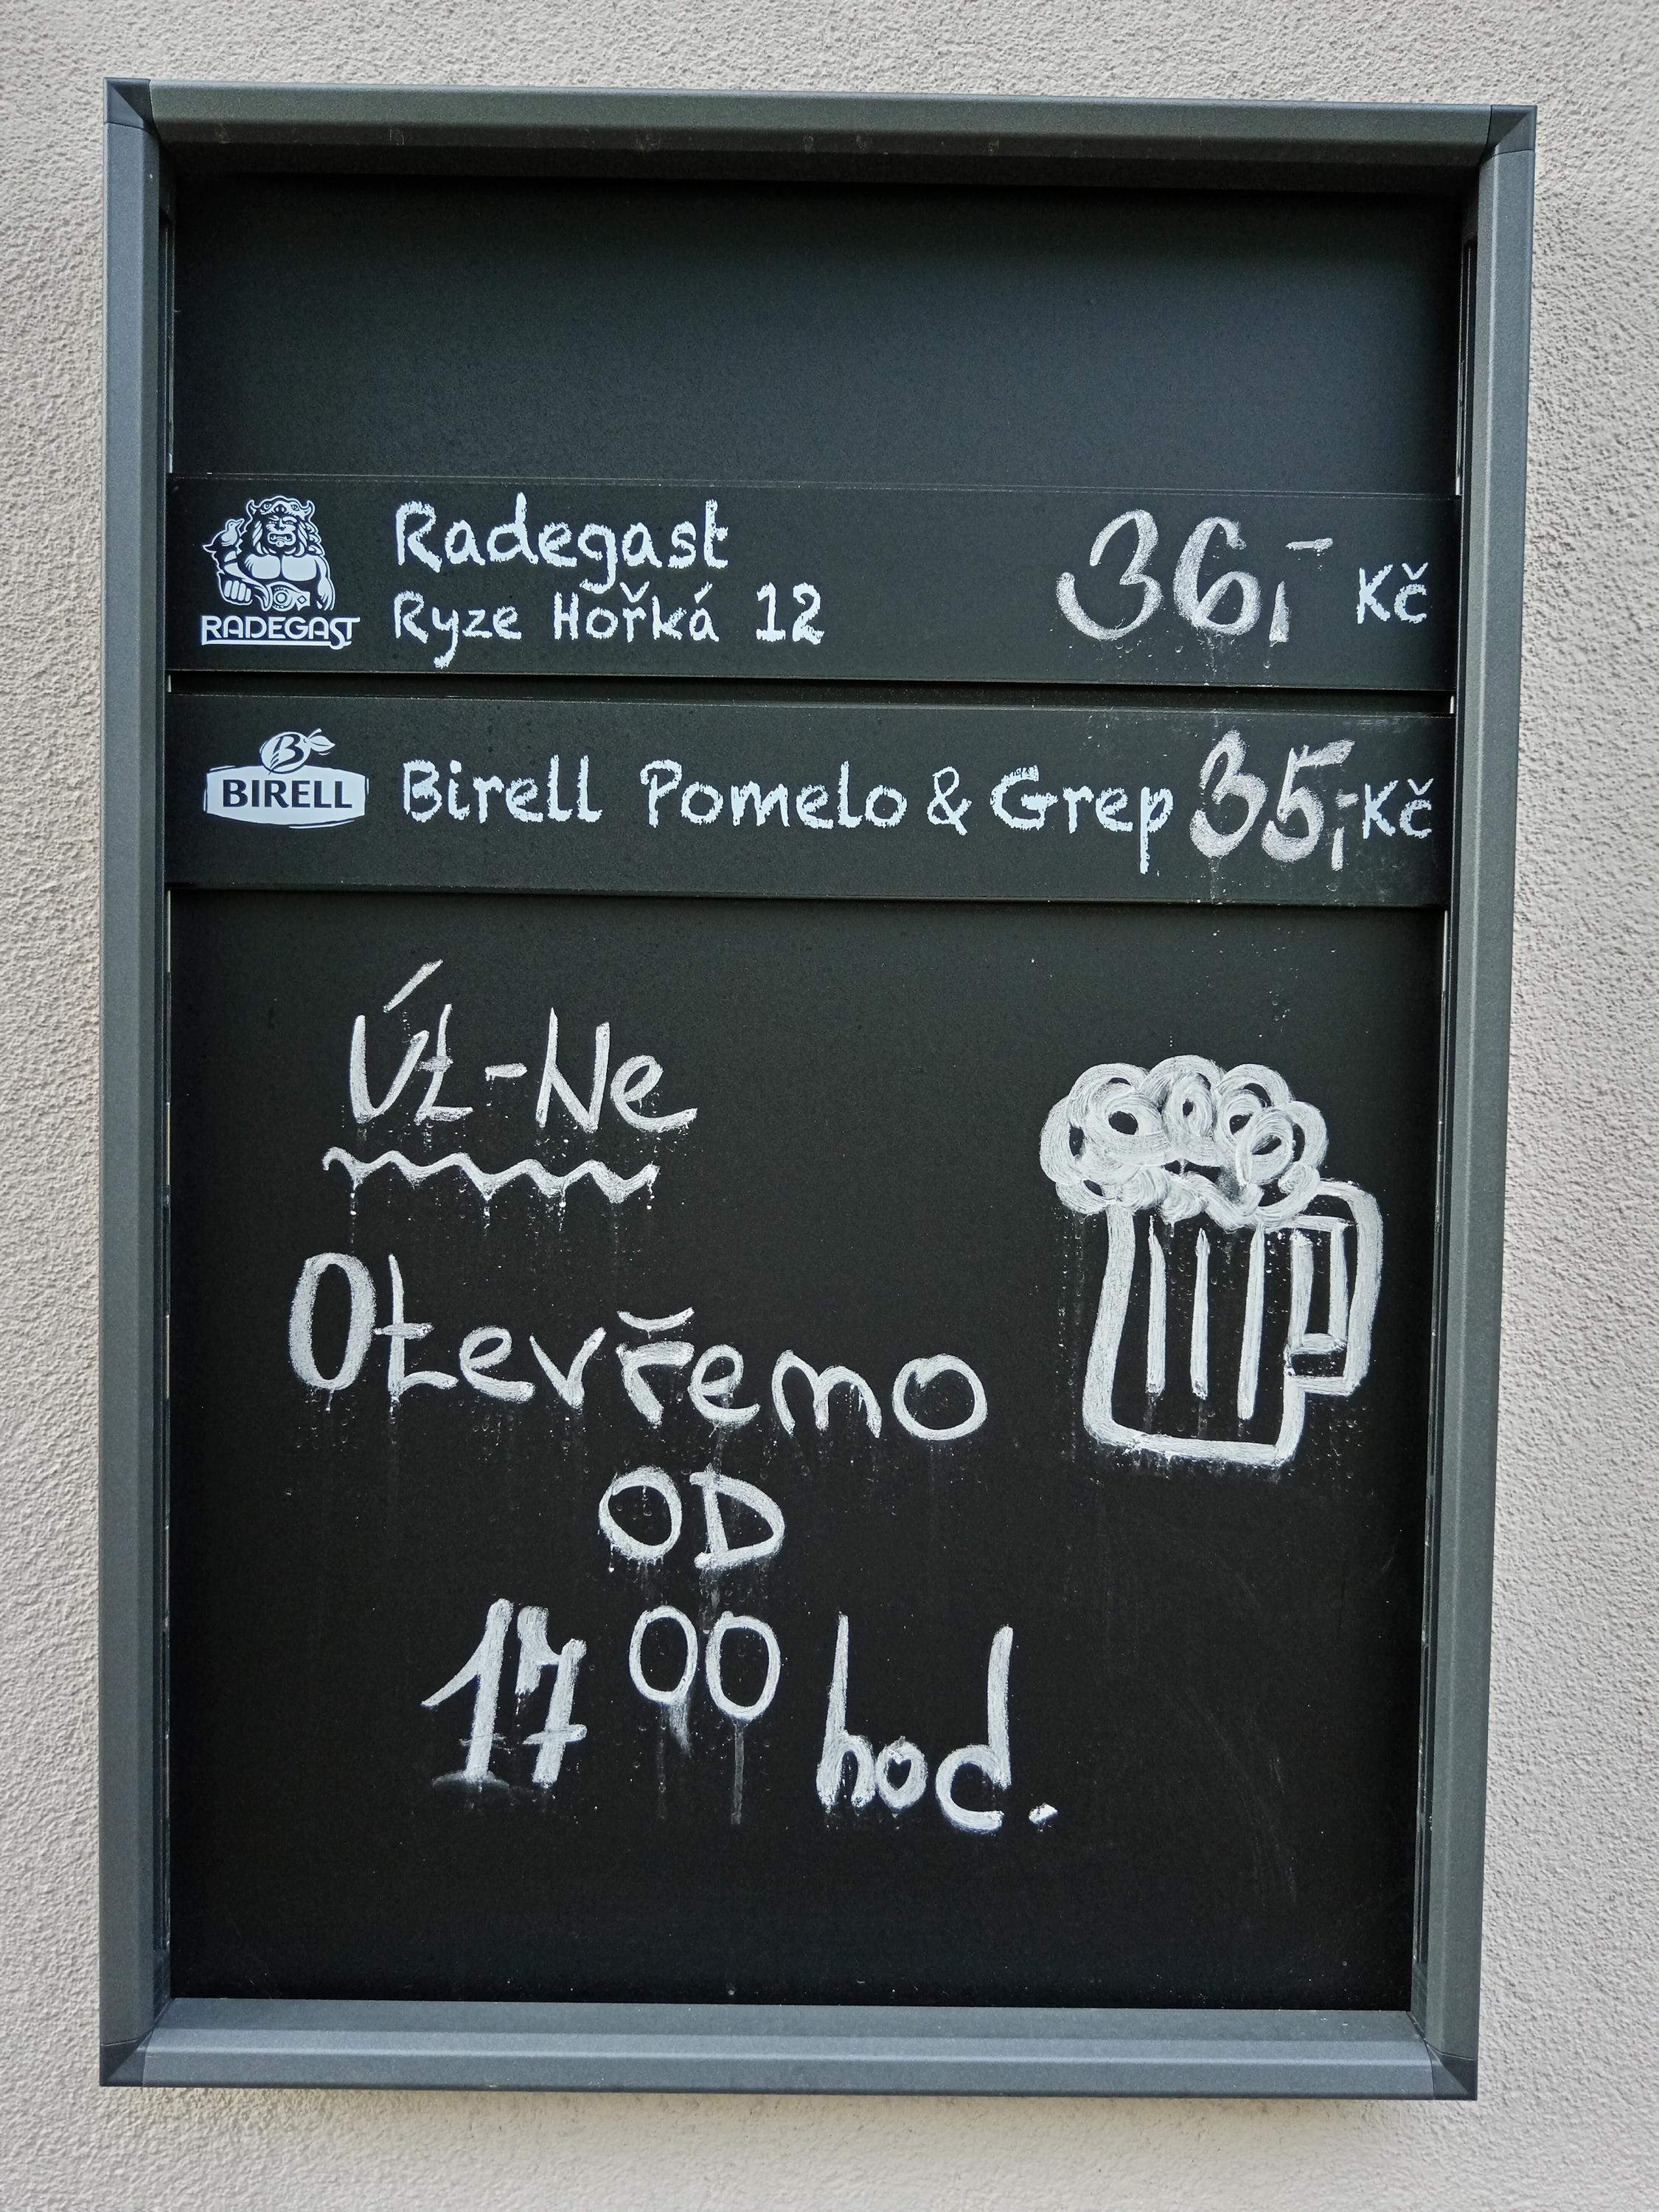 RADEGAST
Radegast
Ryze Hořká 12 36,- Kč
BIRELL Birell Pomelo & Grep 35,- Kč
Út-Ne
Otevřemo
OD
17 00 hod.